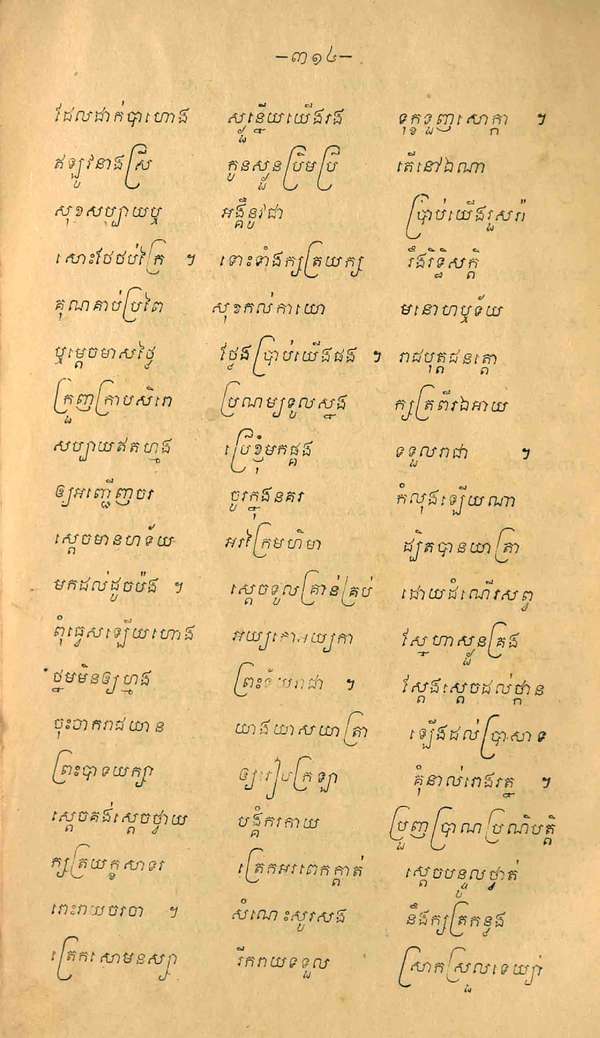 –៣១៤–
ដែលដាក់បាហោង ស្ងួនើយយើងរង ទុក្ខទួញសោក្កា ។
ឥឡូវនាងស្រី កូនស្ងួនប្រិមប្រី តើនៅឯណា
សុខសប្បាយឬ អង្គឺនូវជា ប្រាប់យើងរួសរ៉ា
សោះថែថប់ក្រៃ ។ ទោះទាំងក្សត្រយក្ស រឹងរិទ្ធិសក្តិ
គុណគាប់ប្រពៃ សុខកល់កាយោ មនោហឬទ័យ
ឬម្តេចមាសថ្ងៃ ថ្លែងប្រាប់យើងផង ។ រាជបុត្តជនត្តោ
ក្រួញក្រាបសិរោ ប្រណម្យទូលស្នង ក្សត្រព័រឯអាយ
សប្បាយឥតហ្មង ប្រើខ្ញុំមកផ្គង ទទួលរាជា ។
ឲ្យអញ្ជើញចរ ចូរក្នុងនគរ កំលុងឡើយណា
ស្តេចមានហទ័យ អរក្រៃមហិមា ដ្បិតបានយាត្រា
មកដល់ដូចប៉ង ។ ស្តេចទូលគ្រាន់គ្រប់ ដោយដំណើរសព្វ
ពុំធ្វេសឡើយហោង អយ្យកោអយ្យកា ស្នេហាស្ងួនត្រង
ថ្នមមិនឲ្យហ្មង ព្រះទ័យរាជា ។ ស្តែងស្តេចដល់ថ្កាន
ចុះចាករាជយាន យាងយាសយាត្រា ឡើងដល់ប្រាសាទ
ព្រះបាទយក្សា ឲ្យរៀបក្រឡា គុំនាល់រោងរត្ន ។
ស្តេចគង់ស្តេចថ្វាយ បង្គំករកាយ ប្រួញប្រាណប្រណិបត្តិ
ក្សត្រយក្ខសាទរ ត្រេកអរពេកក្តាត់ ស្តេចបន្ទូលថ្វាត់
ពោះរាយចរចា ។ សំណេះសួរសង នឹងក្សត្រកន្លង
ត្រេកសោមនស្សា រីករាយទទួល ស្រាកស្រួលទេយ្យា